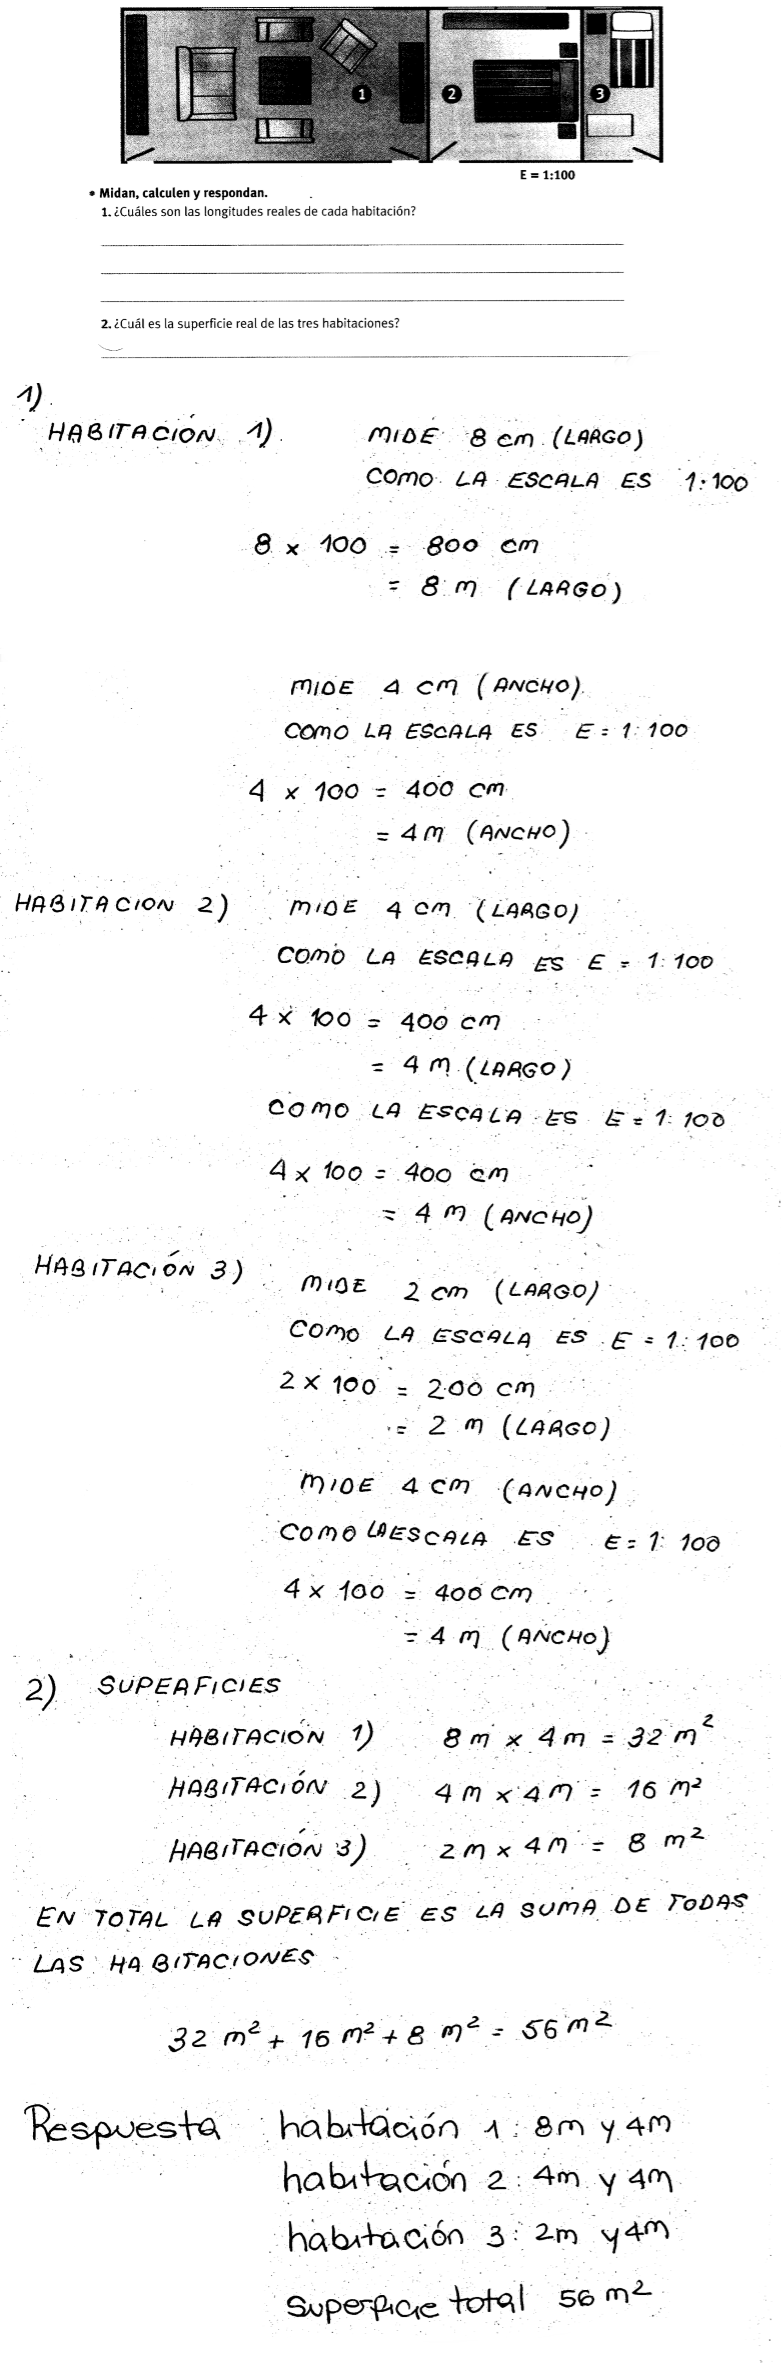 1 2 3
E = 1:100
• Midan, calculen y respondan.
1. ¿Cuáles son las longitudes reales de cada habitación?
2. ¿Cuál es la superficie real de las tres habitaciones?
1)
HABITACIÓN 1) MIDE 8 cm (LARGO)
COMO LA ESCALA ES 1:100
8 x 100 = 800 cm
= 8 m (LARGO)
MIDE 4 cm (ANCHO)
COMO LA ESCALA ES E = 1:100
4 x 100 = 400 cm
= 4 m (ANCHO)
HABITACION 2) MIDE 4 cm (LARGO)
COMO LA ESCALA ES E = 1:100
4 x 100 = 400 cm
= 4 m (LARGO)
COMO LA ESCALA ES E = 1:100
4 x 100 = 400 cm
= 4 m (ANCHO)
HABITACIÓN 3) MIDE 2 cm (LARGO)
COMO LA ESCALA ES E = 1:100
2 x 100 = 200 cm
= 2 m (LARGO)
MIDE 4 cm (ANCHO)
COMO LA ESCALA ES E = 1:100
4 x 100 = 400 cm
= 4 m (ANCHO)
2) SUPERFICIES
HABITACIÓN 1) 8 m x 4 m = 32 m²
HABITACIÓN 2) 4 m x 4 m = 16 m²
HABITACIÓN 3) 2 m x 4 m = 8 m²
EN TOTAL LA SUPERFICIE ES LA SUMA DE TODAS
LAS HABITACIONES
32 m² + 16 m² + 8 m² = 56 m²
Respuesta habitación 1: 8m y 4m
habitación 2: 4m y 4m
habitación 3: 2m y 4m
superficie total 56 m²